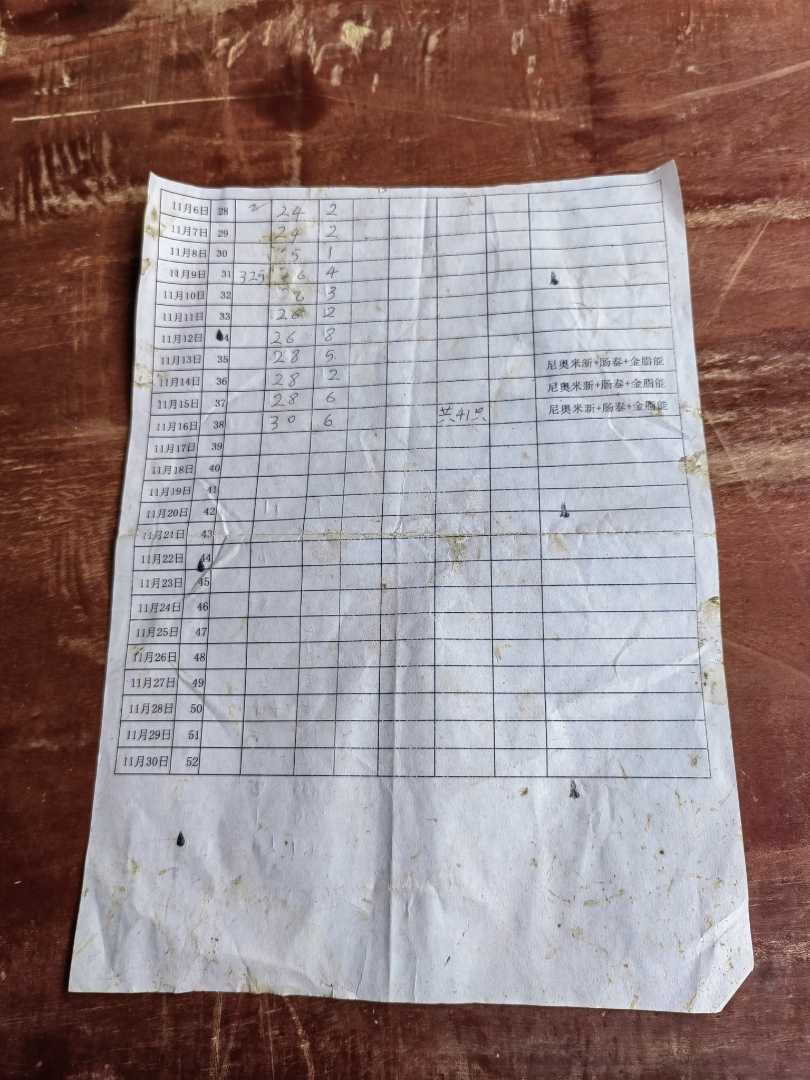 11月6日 28 2 24 2
11月7日 29 24 2
11月8日 30 5 1
11月9日 31 325 26 4
11月10日 32 3
11月11日 33 26 2
11月12日 4 26 8
11月13日 35 28 5 尼奥米新+肠泰+金脂能
11月14日 36 28 2 尼奥米新+肠泰+金脂能
11月15日 37 28 6 共41只 尼奥米新+肠泰+金脂能
11月16日 38 30 6
11月17日 39
11月18日 40
11月19日 41
11月20日 42
11月21日 43
11月22日 44
11月23日 45
11月24日 46
11月25日 47
11月26日 48
11月27日 49
11月28日 50
11月29日 51
11月30日 52